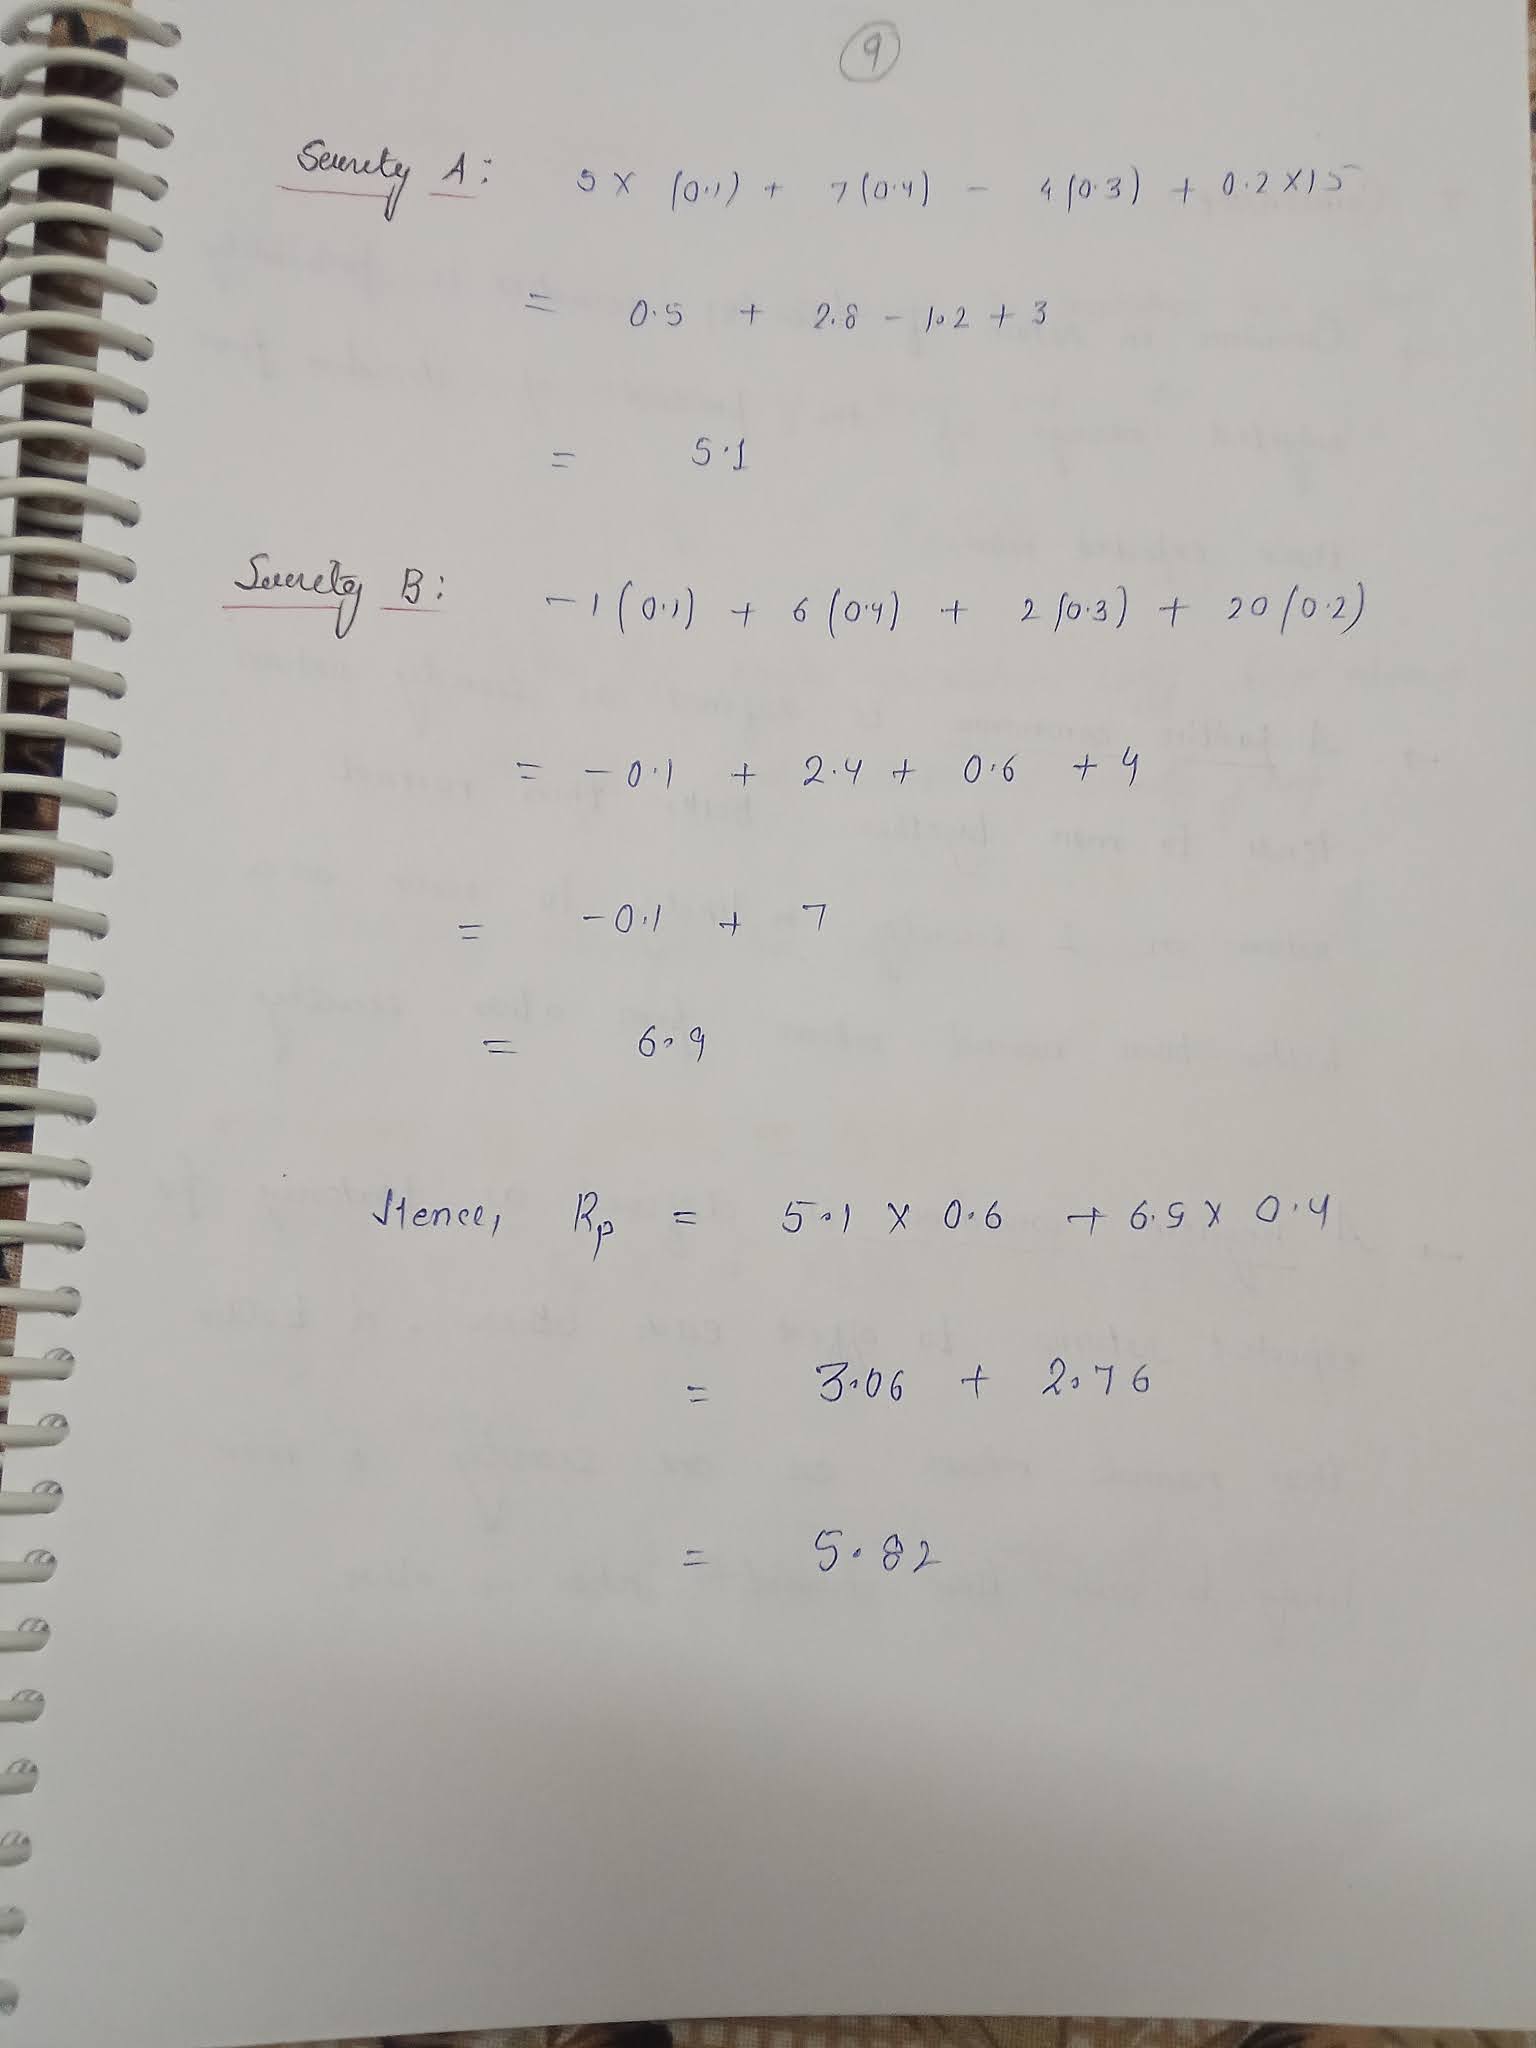 9
Security A: 5 × (0.1) + 7(0.4) - 4(0.3) + 0.2×15
= 0.5 + 2.8 - 1.2 + 3
= 5.1
Security B: -1(0.1) + 6(0.4) + 2(0.3) + 20(0.2)
= -0.1 + 2.4 + 0.6 + 4
= -0.1 + 7
= 6.9
Hence, Rp = 5.1 × 0.6 + 6.9 × 0.4
= 3.06 + 2.76
= 5.82